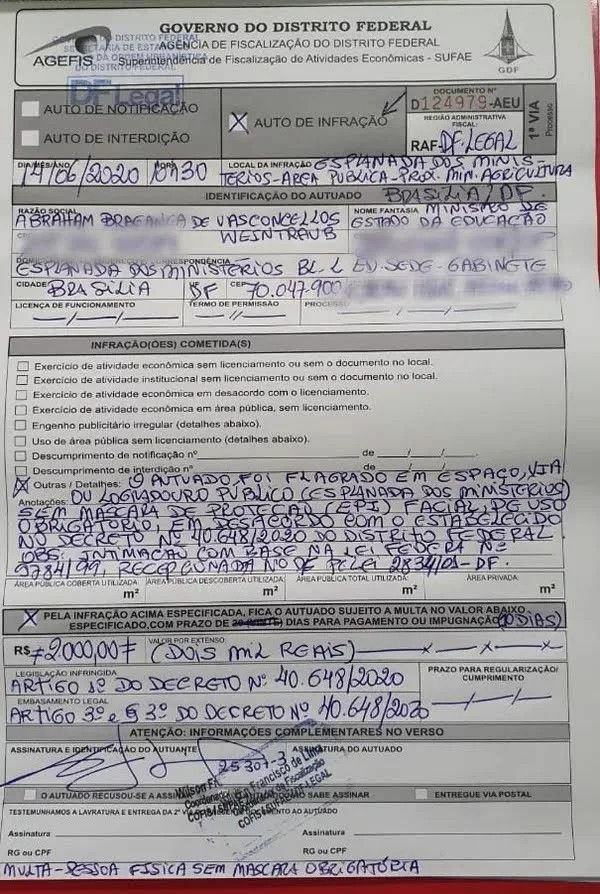 GOVERNO DO DISTRITO FEDERAL
AGÊNCIA DE FISCALIZAÇÃO DO DISTRITO FEDERAL
Superintendência de Fiscalização de Atividades Econômicas - SUFAE
AGEFIS
GDF
DF Legal
AUTO DE NOTIFICAÇÃO
AUTO DE INTERDIÇÃO
X AUTO DE INFRAÇÃO
DOCUMENTO Nº
D124979-AEU
REGIÃO ADMINISTRATIVA
FISCAL:
RAF-DF-LEGAL
1ª VIA
Processo
DIA/MÊS/ANO
14/06/2020
HORA
LOCAL DA INFRAÇÃO ESPLANADA DOS MINIS-
TÉRIOS-AREA PUBLICA-PROX. MIN. AGRICULTURA
BRASILIA/DF.
IDENTIFICAÇÃO DO AUTUADO
RAZÃO SOCIAL
ABRAHAM BRAGANÇA DE VASCONCELLOS
WEINTRAUB
NOME FANTASIA MINISTRO DE
ESTADO DA EDUCAÇÃO
ESPLANADA DOS MINISTÉRIOS BL-L ED-SEDE-GABINETE
CIDADE BRASILIA
UF DF
CEP 70.047-900
LICENÇA DE FUNCIONAMENTO
TERMO DE PERMISSÃO
PROCESSO
INFRAÇÃO(ÕES) COMETIDA(S)
Exercício de atividade econômica sem licenciamento ou sem o documento no local.
Exercício de atividade institucional sem licenciamento ou sem o documento no local.
Exercício de atividade econômica em desacordo com o licenciamento.
Exercício de atividade econômica em área pública, sem licenciamento.
Engenho publicitário irregular (detalhes abaixo).
Uso de área pública sem licenciamento (detalhes abaixo).
Descumprimento de notificação nº de / /
Descumprimento de interdição nº de / /
X Outras / Detalhes: O AUTUADO FOI FLAGRADO EM ESPAÇO, VIA
Anotações: OU LOGRADOURO PUBLICO (ESPLANADA DOS MINISTÉRIOS)
SEM MASCARA DE PROTEÇÃO (EPI) FACIAL, DE USO
OBRIGATÓRIO, EM DESACORDO COM O ESTABELECIDO
NO DECRETO Nº 40.648/2020 DO DISTRITO FEDERAL
OBS: INTIMAÇÃO COM BASE NA LEI FEDERAL Nº
9784/99, RECEPCIONADA NO DF PELEI 2834/01-DF.
ÁREA PÚBLICA COBERTA UTILIZADA: m²
ÁREA PÚBLICA DESCOBERTA UTILIZADA: m²
ÁREA PÚBLICA TOTAL UTILIZADA: m²
ÁREA PRIVADA: m²
X PELA INFRAÇÃO ACIMA ESPECIFICADA, FICA O AUTUADO SUJEITO A MULTA NO VALOR ABAIXO
ESPECIFICADO, COM PRAZO DE DIAS PARA PAGAMENTO OU IMPUGNAÇÃO (10 DIAS)
R$ 2000,00
VALOR POR EXTENSO
(DOIS MIL REAIS)
LEGISLAÇÃO INFRINGIDA
ARTIGO 1º DO DECRETO Nº 40.648/2020
EMBASAMENTO LEGAL
ARTIGO 3º e § 3º DO DECRETO Nº 40.648/2020
PRAZO PARA REGULARIZAÇÃO/
CUMPRIMENTO
ATENÇÃO: INFORMAÇÕES COMPLEMENTARES NO VERSO
ASSINATURA E IDENTIFICAÇÃO DO AUTUANTE
ASSINATURA DO AUTUADO
Francisco de Lima
O AUTUADO RECUSOU-SE A
SABE ASSINAR
ENTREGUE VIA POSTAL
TESTEMUNHAMOS A LAVRATURA E ENTREGA DA 2ª AO AUTUADO
Assinatura
Assinatura
RG ou CPF
RG ou CPF
MULTA-PESSOA FISICA SEM MASCARA OBRIGATÓRIA